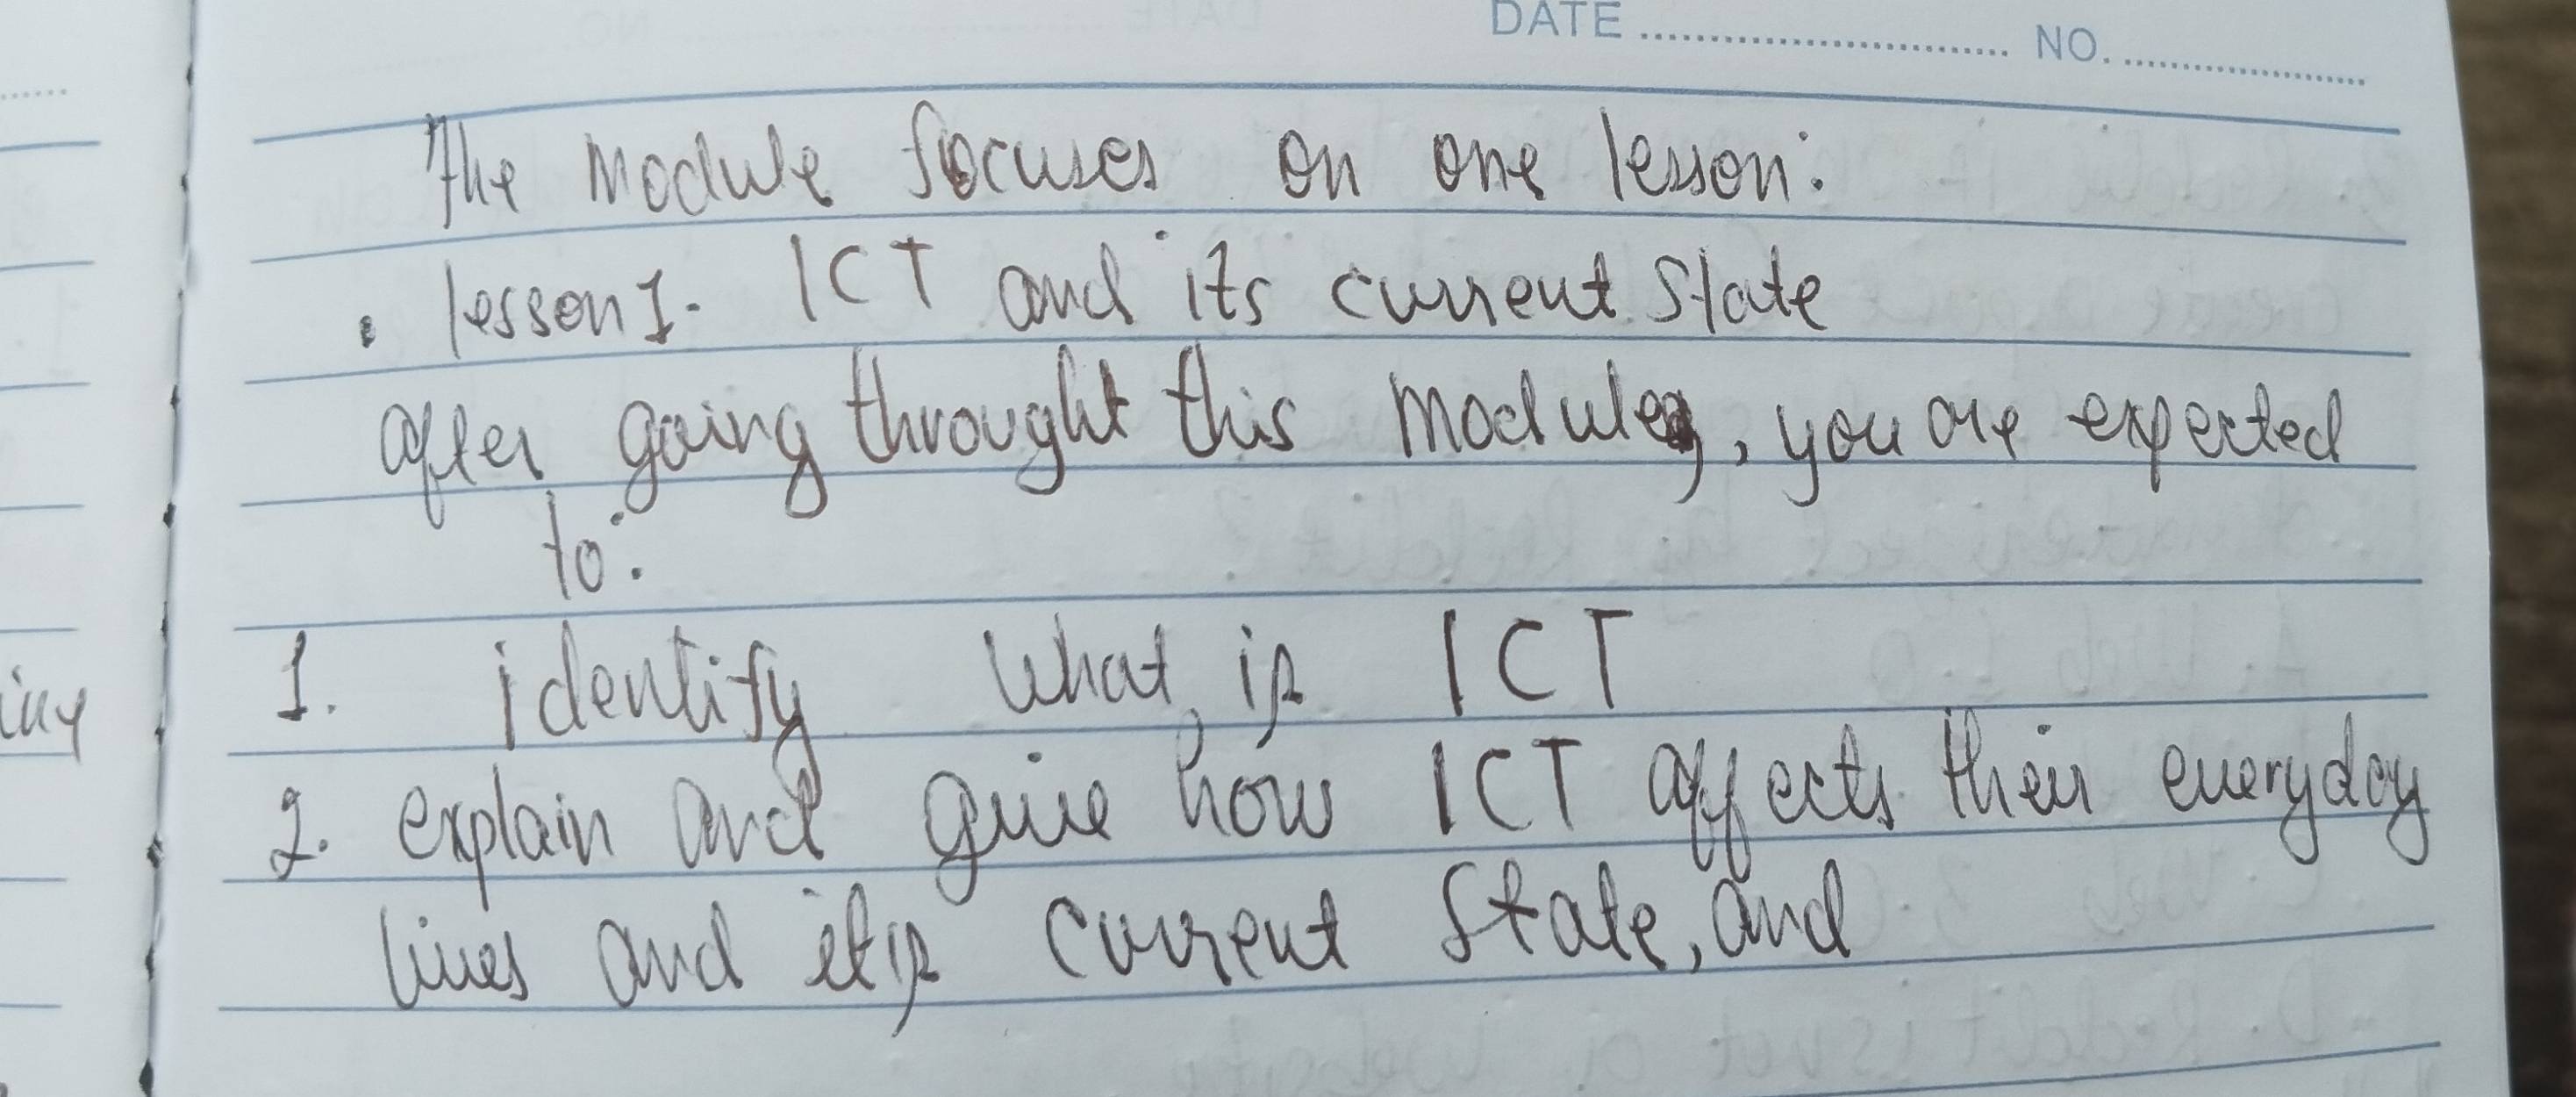 DATE NO.
The Module focuses on one lesson:
. lesson 1. ICT and its current State
after going throught this module, you are expected
to:
1. identify what is ICT
2. explain and give how ICT affects their everyday
lives and its current State, and